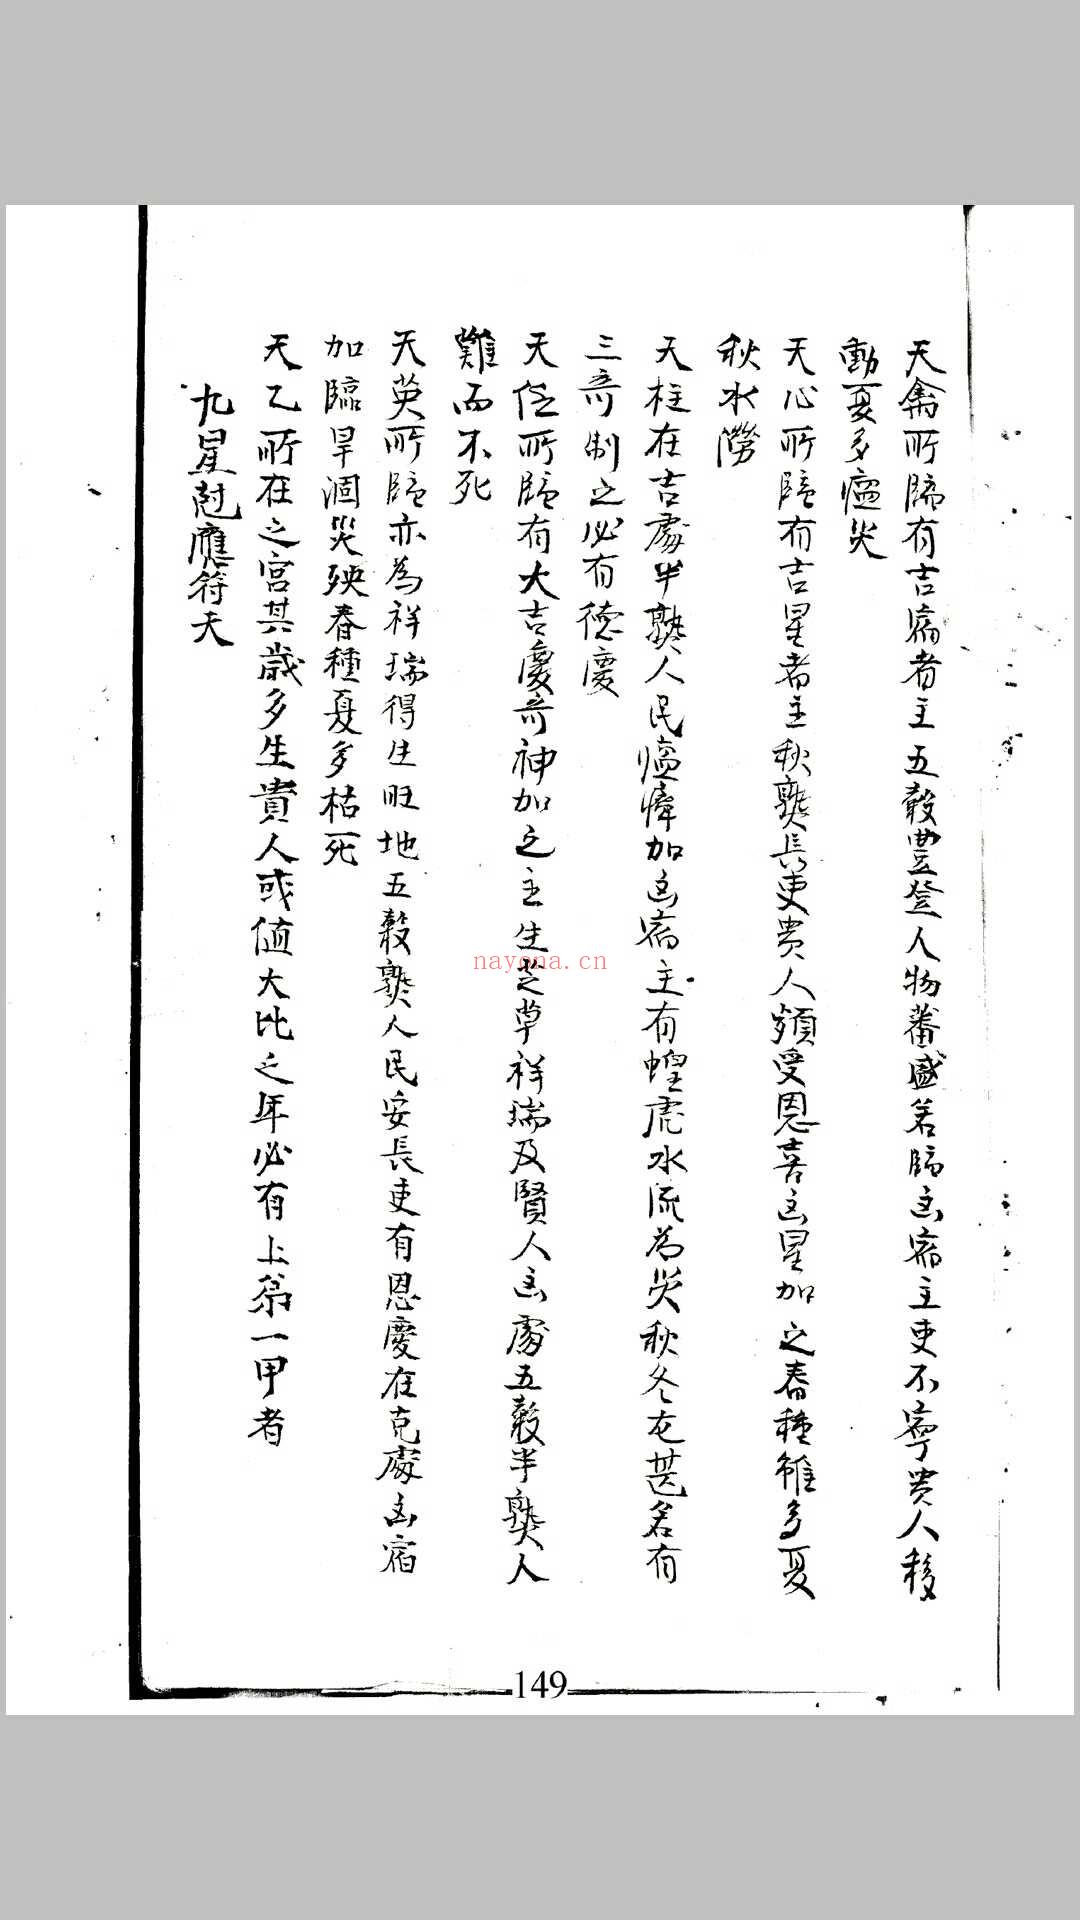 天禽所臨有吉宿者主五穀豐登人物蕃盛若臨凶宿主吏不寧貴人移
動夏多瘟災
天心所臨有吉星者主秋熟長吏貴人頻受恩喜凶星加之春種雖多夏
秋水澇
天柱在吉處半熟人民瘟瘴加凶宿主有蝗虎水流為災秋冬尤甚若有
三奇制之必有德慶
天任所臨有大吉慶奇神加之主生芝草祥瑞及賢人凶處五穀半熟人
難而不死
天英所臨亦為祥瑞得生旺地五穀熟人民安長吏有恩慶在克處凶宿
加臨旱涸災殃春種夏多枯死
天乙所在之宮其歲多生貴人或值大比之年必有上第一甲者
九星尅應符天
149
nayona.cn